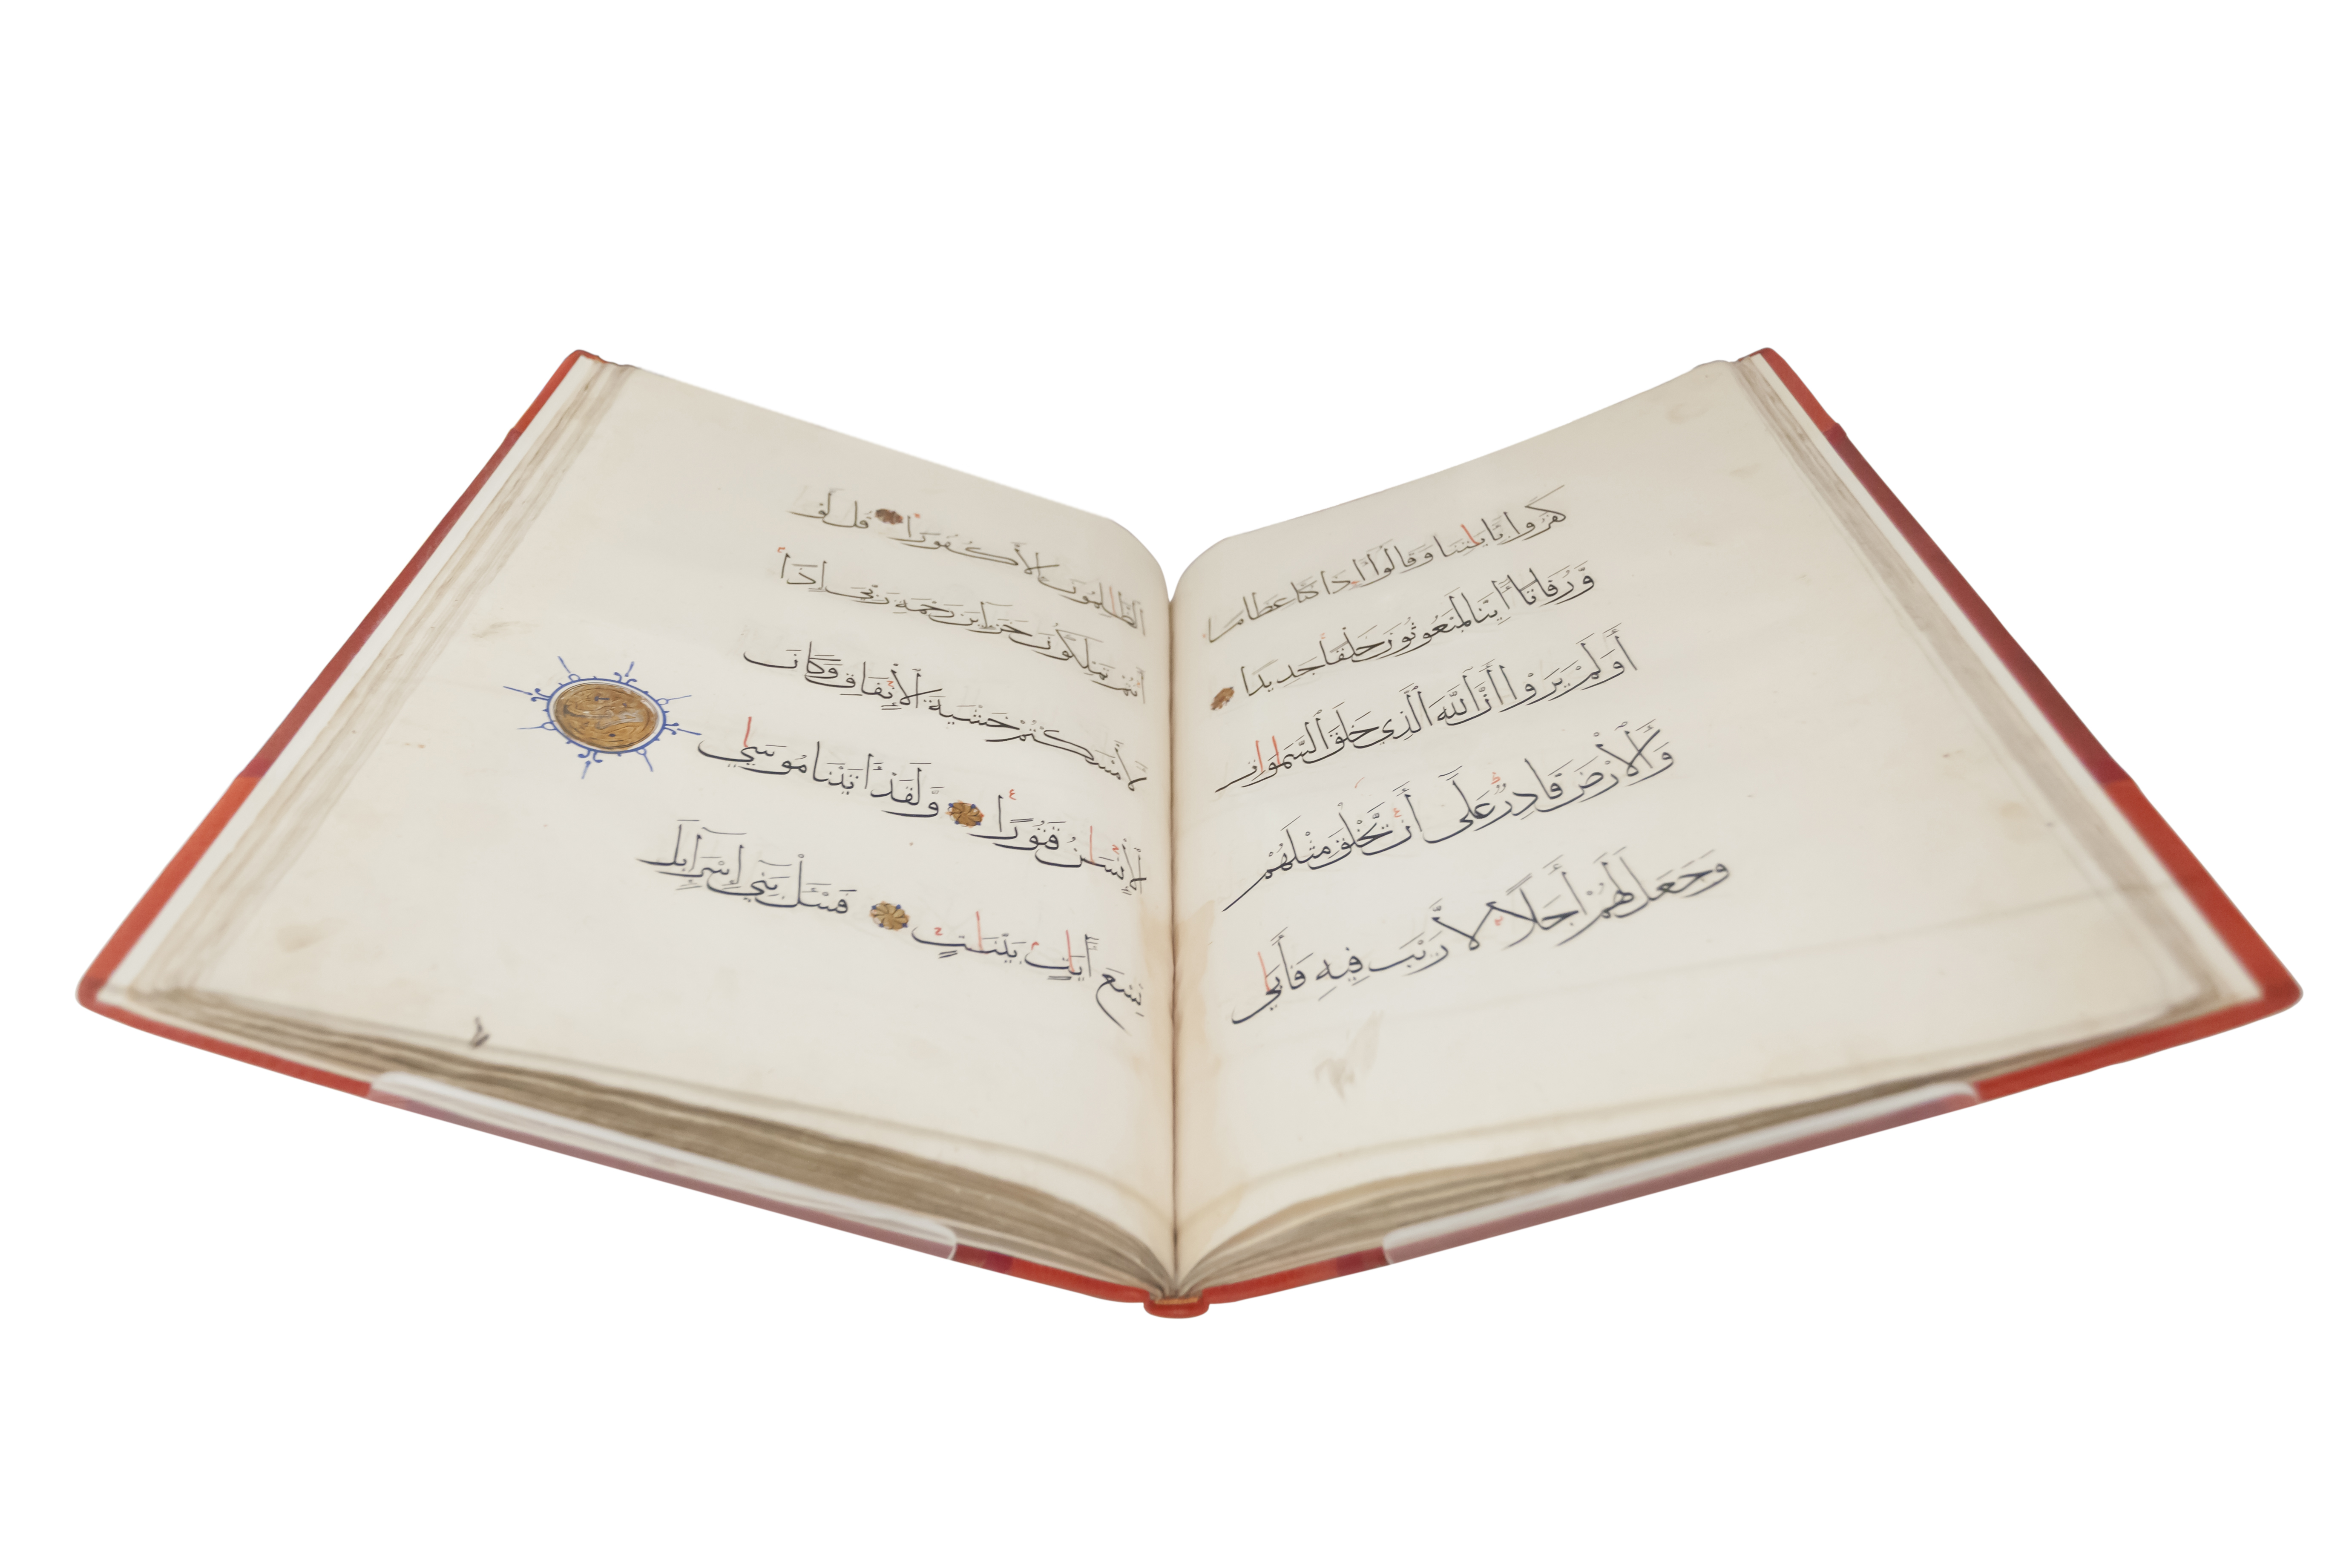 كَفَرُوا بِآيَاتِنَا وَقَالُوا أَإِذَا كُنَّا عِظَامًا
وَرُفَاتًا أَإِنَّا لَمَبْعُوثُونَ خَلْقًا جَدِيدًا
أَوَلَمْ يَرَوْا أَنَّ اللَّهَ الَّذِي خَلَقَ السَّمَاوَاتِ
وَالْأَرْضَ قَادِرٌ عَلَىٰ أَنْ يَخْلُقَ مِثْلَهُمْ
وَجَعَلَ لَهُمْ أَجَلًا لَا رَيْبَ فِيهِ فَأَبَى
الظَّالِمُونَ إِلَّا كُفُورًا قُل لَوْ
أَنْتُمْ تَمْلِكُونَ خَزَائِنَ رَحْمَةِ رَبِّي إِذًا
لَأَمْسَكْتُمْ خَشْيَةَ الْإِنْفَاقِ وَكَانَ
الْإِنْسَانُ قَتُورًا وَلَقَدْ آتَيْنَا مُوسَى
تِسْعَ آيَاتٍ بَيِّنَاتٍ فَسْئَلْ بَنِي إِسْرَائِيلَ